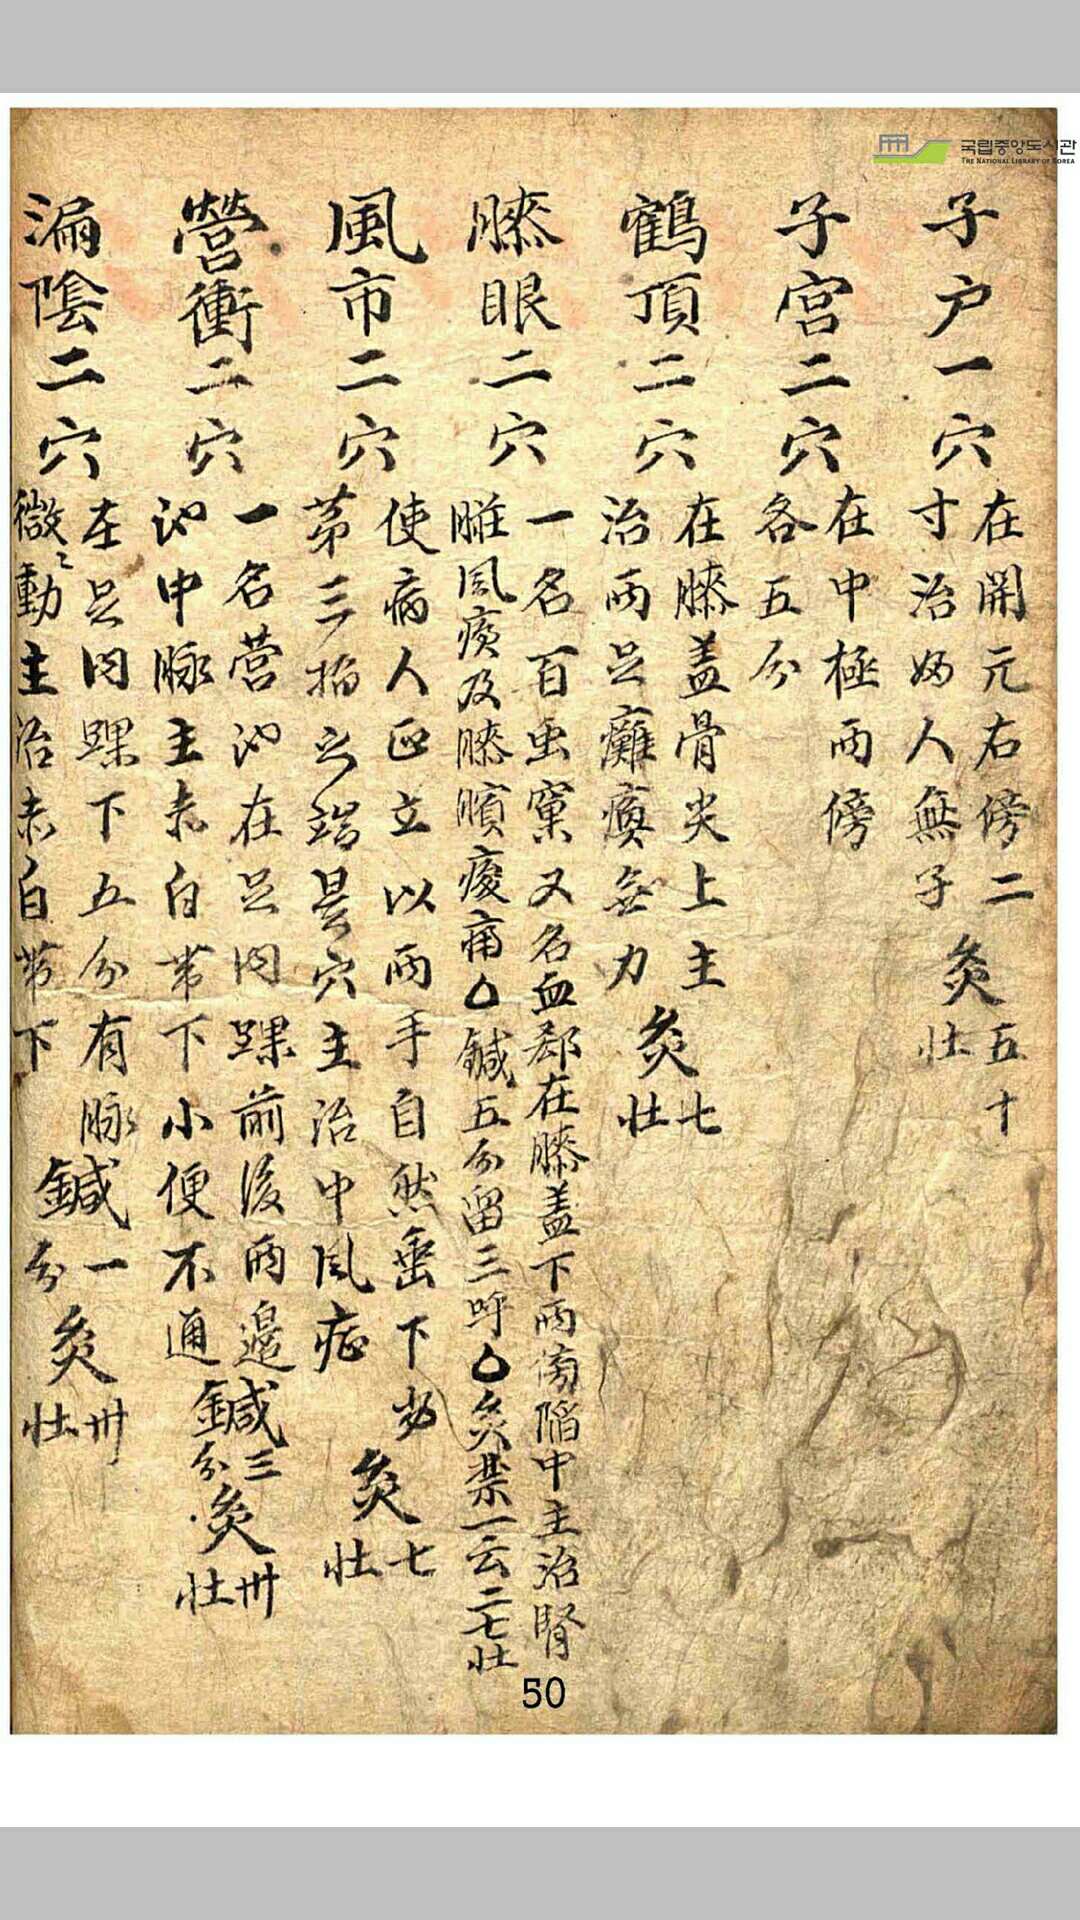 국립중앙도서관
THE NATIONAL LIBRARY OF KOREA
子户一穴
在開元右傍二
寸治妇人無子
灸五十壯
子宮二穴
在中極兩傍
各五分
鶴頂二穴
在膝盖骨尖上主
治兩足癱瘓無力
灸七壯
膝眼二穴
一名百虫窠又名血郄在膝盖下兩傍陷中主治腎
臟風瘡及膝臏痠痛△鍼五分留三呼△灸禁一云二七壯
風市二穴
使病人正立以兩手自然垂下當
第三指之端是穴主治中风症
灸七壯
營衝二穴
一名营池在足内踝前後兩邊
池中脉主赤白带下小便不通
鍼三分灸卅壯
漏陰二穴
在足内踝下五分有脉
微〻動主治赤白带下
鍼一分灸卅壯
50